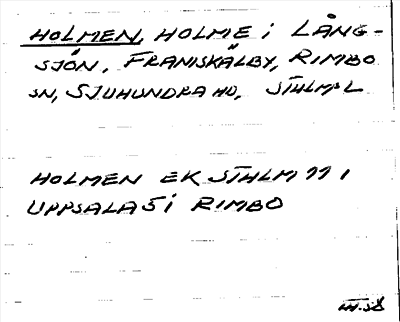 HOLMEN, HOLME i LÅNG-
SJÖN, FRANISKÄLBY, RIMBO
SN, SJUHUNDRA HD, STHLMS L
HOLMEN EK STHLM 11 I
UPPSALA 5 i RIMBO